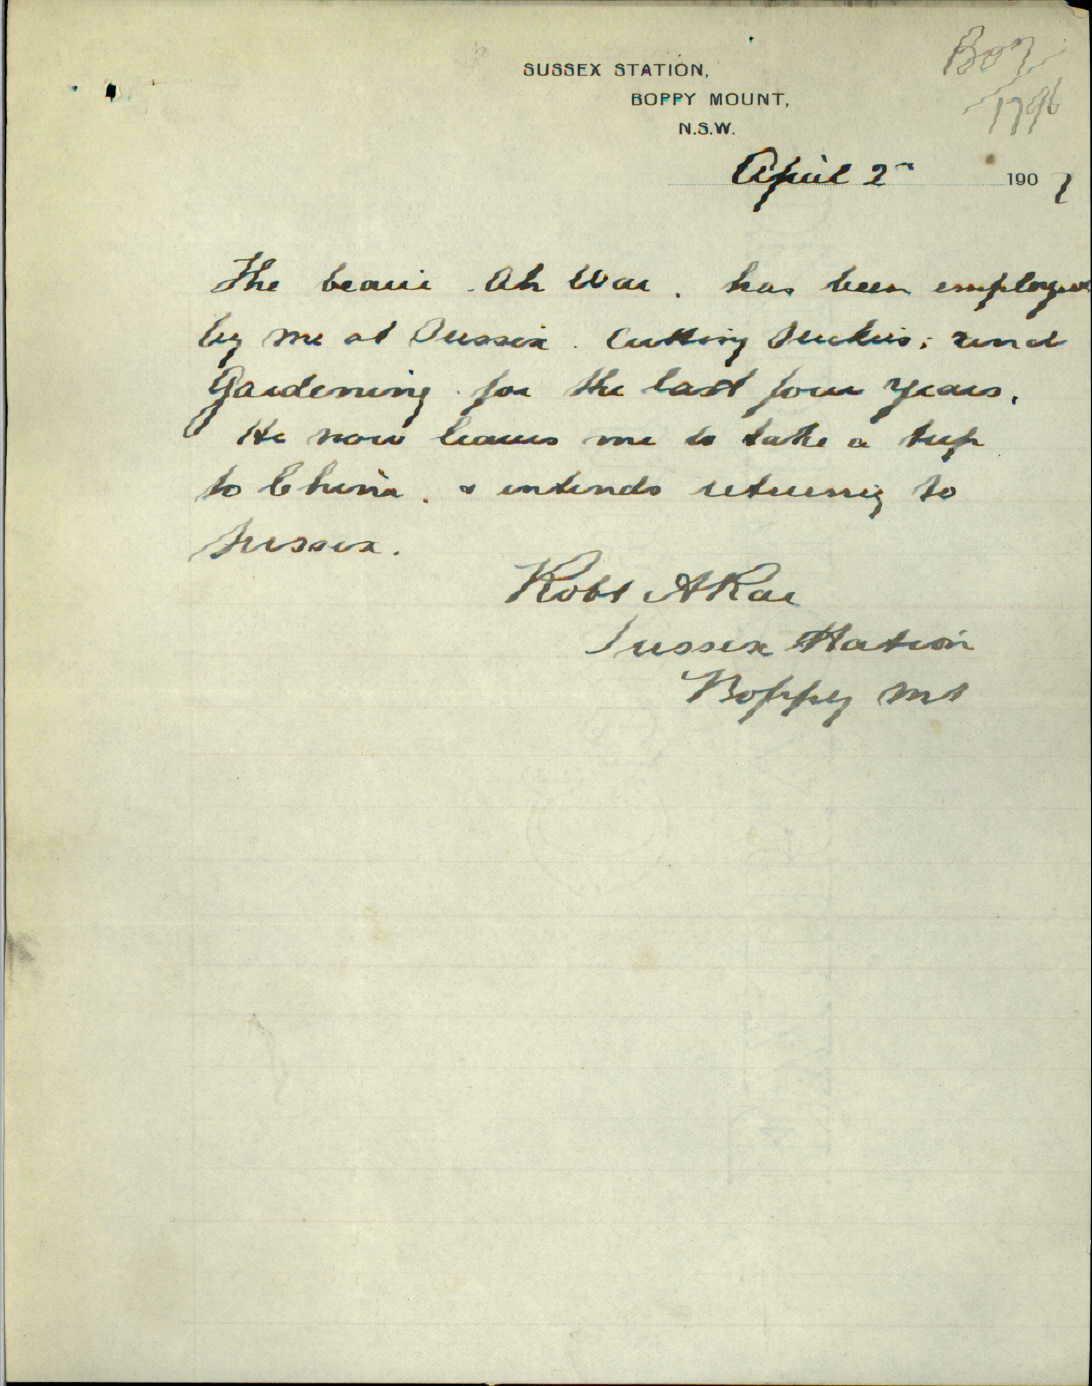 SUSSEX STATION,
BOPPY MOUNT,
N.S.W.
B07/1796
April 2nd 1907
The bearer Ah War. has been employed
by me at Sussex. Cutting Suckers; and
Gardening for the last four years.
He now leaves me to take a trip
to China. & intends returning to
Sussex.
Robt A Rae
Sussex Station
Boppy Mt